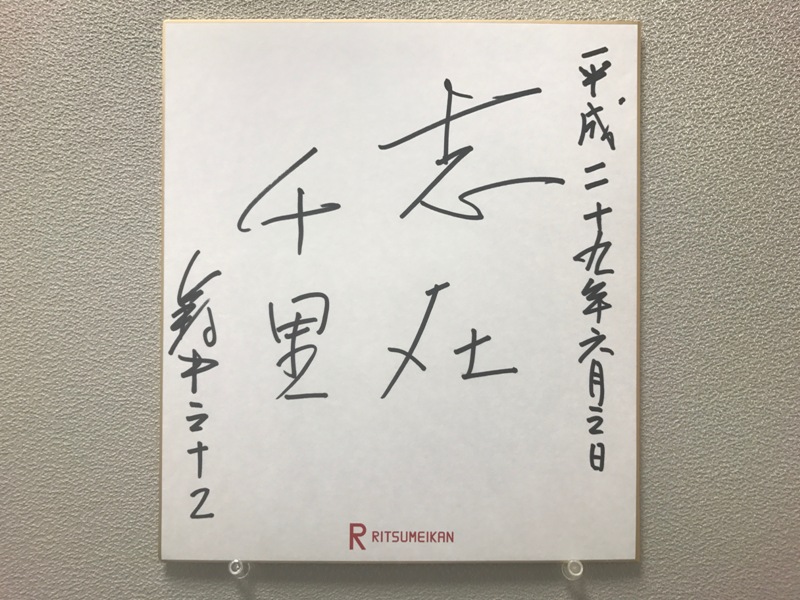 平成二十九年六月三日
志在
千里
寿中三十二
RITSUMEIKAN